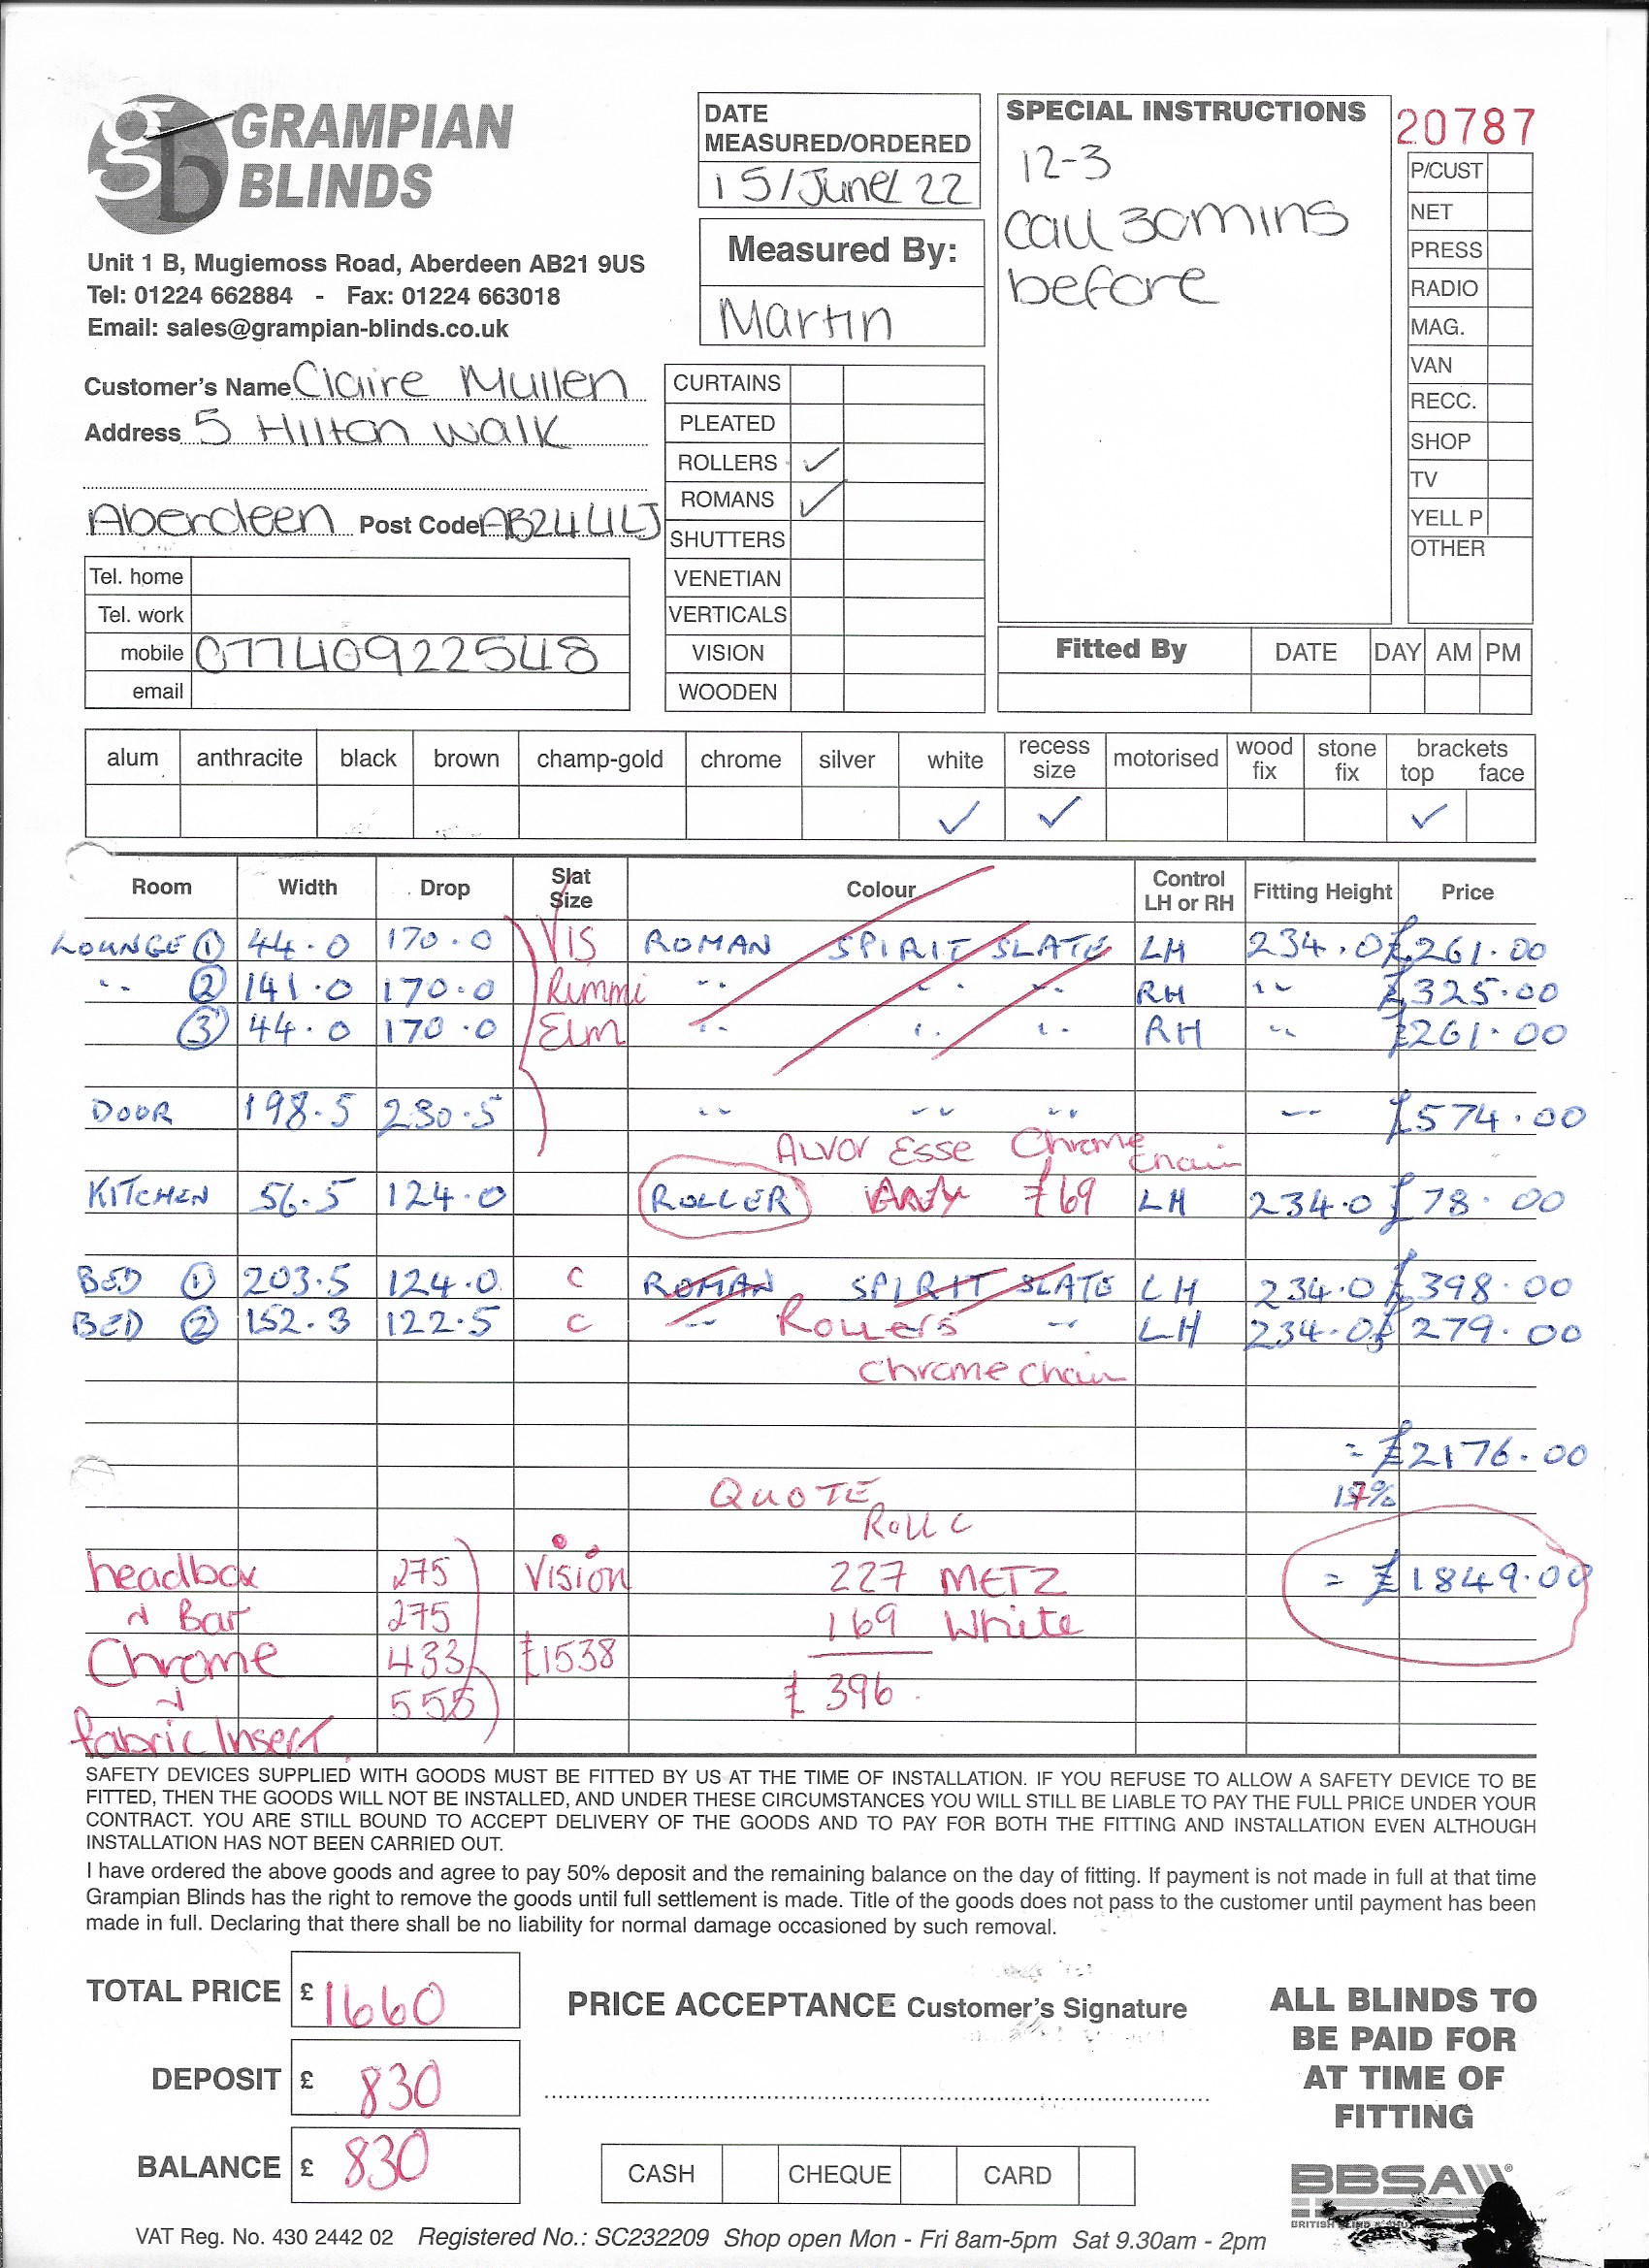 GRAMPIAN
BLINDS
Unit 1 B, Mugiemoss Road, Aberdeen AB21 9US
Tel: 01224 662884 - Fax: 01224 663018
Email: sales@grampian-blinds.co.uk
DATE
MEASURED/ORDERED
15/June/22
Measured By:
Martin
SPECIAL INSTRUCTIONS
12-3
call 30mins
before
20787
P/CUST
NET
PRESS
RADIO
MAG.
VAN
RECC.
SHOP
TV
YELL P
OTHER
Customer's Name Claire Mullen
Address 5 Hilton Walk
Aberdeen Post Code AB24 4LJ
Tel. home
Tel. work
mobile 07740922548
email
CURTAINS
PLEATED
ROLLERS ✓
ROMANS ✓
SHUTTERS
VENETIAN
VERTICALS
VISION
WOODEN
Fitted By DATE DAY AM PM
alum anthracite black brown champ-gold chrome silver white recess size motorised wood fix stone fix brackets top face
✓ ✓ ✓
Room Width Drop Slat Size Colour Control LH or RH Fitting Height Price
LOUNGE ① 44.0 170.0 Vis ROMAN SPIRIT SLATE LH 234.0 £261.00
" ② 141.0 170.0 Rimmi " " " RH " £325.00
③ 44.0 170.0 Elm " " " RH " £261.00
DOOR 198.5 230.5 " " " " £574.00
ALVOR Esse Chrome chain
KITCHEN 56.5 124.0 ROLLER £69 LH 234.0 £78.00
BED ① 203.5 124.0 C ROMAN SPIRIT SLATE LH 234.0 £398.00
BED ② 152.3 122.5 C " Rollers " LH 234.0 £279.00
Chrome chain
= £2176.00
QUOTE 17%
Roll C
headbox 275 Vision 227 METZ = £1849.00
& Bar 275 169 White
Chrome 433 £1538
& 555 £396.
fabric Insert
SAFETY DEVICES SUPPLIED WITH GOODS MUST BE FITTED BY US AT THE TIME OF INSTALLATION. IF YOU REFUSE TO ALLOW A SAFETY DEVICE TO BE
FITTED, THEN THE GOODS WILL NOT BE INSTALLED, AND UNDER THESE CIRCUMSTANCES YOU WILL STILL BE LIABLE TO PAY THE FULL PRICE UNDER YOUR
CONTRACT. YOU ARE STILL BOUND TO ACCEPT DELIVERY OF THE GOODS AND TO PAY FOR BOTH THE FITTING AND INSTALLATION EVEN ALTHOUGH
INSTALLATION HAS NOT BEEN CARRIED OUT.
I have ordered the above goods and agree to pay 50% deposit and the remaining balance on the day of fitting. If payment is not made in full at that time
Grampian Blinds has the right to remove the goods until full settlement is made. Title of the goods does not pass to the customer until payment has been
made in full. Declaring that there shall be no liability for normal damage occasioned by such removal.
TOTAL PRICE £ 1660
DEPOSIT £ 830
BALANCE £ 830
PRICE ACCEPTANCE Customer's Signature
CASH CHEQUE CARD
ALL BLINDS TO
BE PAID FOR
AT TIME OF
FITTING
BBSA
VAT Reg. No. 430 2442 02 Registered No.: SC232209 Shop open Mon - Fri 8am-5pm Sat 9.30am - 2pm